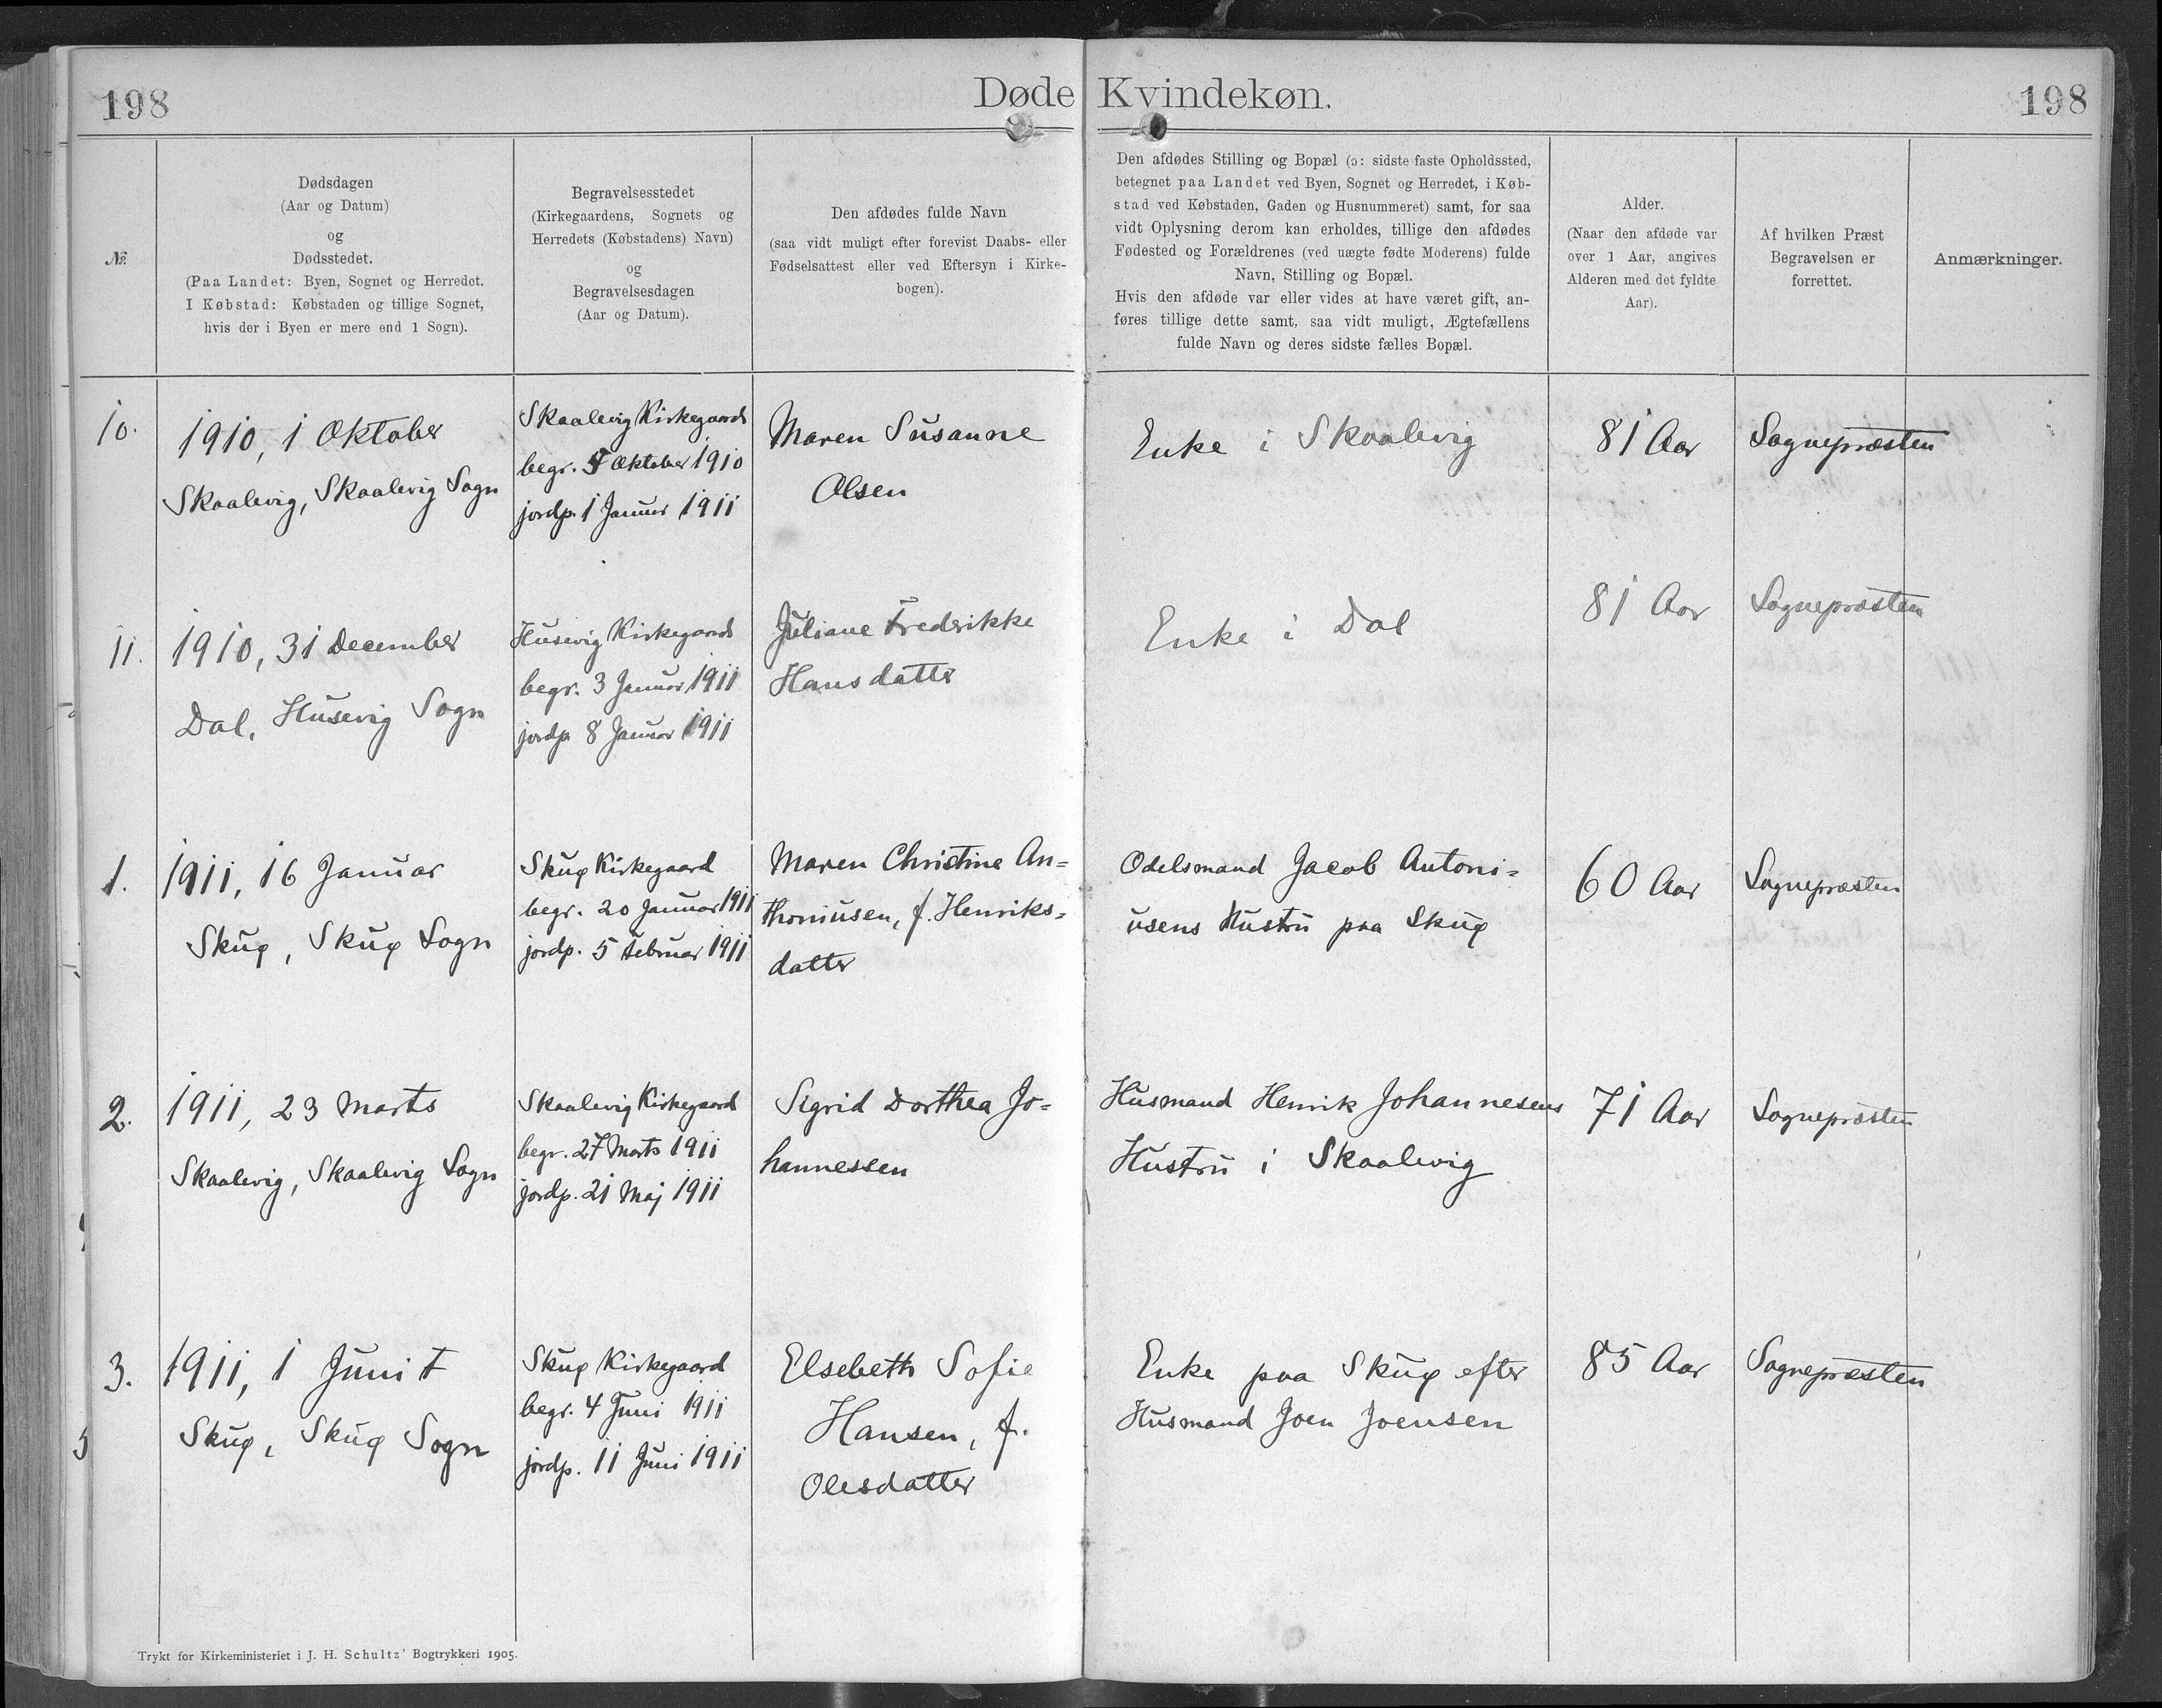 198
Døde Kvindekøn.
198
№.
Dødsdagen
(Aar og Datum)
og
Dødsstedet.
(Paa Landet: Byen, Sognet og Herredet.
I Købstad: Købstaden og tillige Sognet,
hvis der i Byen er mere end 1 Sogn).
Begravelsesstedet
(Kirkegaardens, Sognets og
Herredets (Købstadens) Navn)
og
Begravelsesdagen
(Aar og Datum).
Den afdødes fulde Navn
(saa vidt muligt efter forevist Daabs- eller
Fødselsattest eller ved Eftersyn i Kirke-
bogen).
Den afdødes Stilling og Bopæl (ɔ: sidste faste Opholdssted,
betegnet paa Landet ved Byen, Sognet og Herredet, i Køb-
stad ved Købstaden, Gaden og Husnummeret) samt, for saa
vidt Oplysning derom kan erholdes, tillige den afdødes
Fødested og Forældrenes (ved uægte fødte Moderens) fulde
Navn, Stilling og Bopæl.
Hvis den afdøde var eller vides at have været gift, an-
føres tillige dette samt, saa vidt muligt, Ægtefællens
fulde Navn og deres sidste fælles Bopæl.
Alder.
(Naar den afdøde var
over 1 Aar, angives
Alderen med det fyldte
Aar).
Af hvilken Præst
Begravelsen er
forrettet.
Anmærkninger.
10.
1910, 1 Oktober
Skaalevig, Skaalevig Sogn
Skaalevig Kirkegaard
begr. Oktober 1910
jordp. 1 Januar 1911
Maren Susanne
Olsen
Enke i Skaalevig
81 Aar
Sognepræsten
11.
1910, 31 December
Dal, Husevig Sogn
Husevig Kirkegaard
begr. 3 Januar 1911
jordp. 8 Januar 1911
Juliane Frederikke
Hansdatter
Enke i Dal
81 Aar
Sognepræsten
1.
1911, 16 Januar
Skúø, Skúø Sogn
Skúø Kirkegaard
begr. 20 Januar 1911
jordp. 5 Februar 1911
Maren Christine An=
thoniusen, f. Henriks=
datter
Odelsmand Jacob Antoni=
usens Hustru paa Skúø
60 Aar
Sognepræsten
2.
1911, 23 Marts
Skaalevig, Skaalevig Sogn
Skaalevig Kirkegaard
begr. 27 Marts 1911
jordp. 21 Maj 1911
Sigrid Dorthea Jo=
hannessen
Husmand Henrik Johannesens
Hustru i Skaalevig
71 Aar
Sognepræsten
3.
1911, 1 Juni †
Skúø, Skúø Sogn
Skúø Kirkegaard
begr. 4 Juni 1911
jordp. 11 Juni 1911
Elsebeth Sofie
Hansen, f.
Olesdatter
Enke paa Skúø efter
Husmand Joen Joensen
85 Aar
Sognepræsten
Trykt for Kirkeministeriet i J. H. Schultz' Bogtrykkeri 1905.